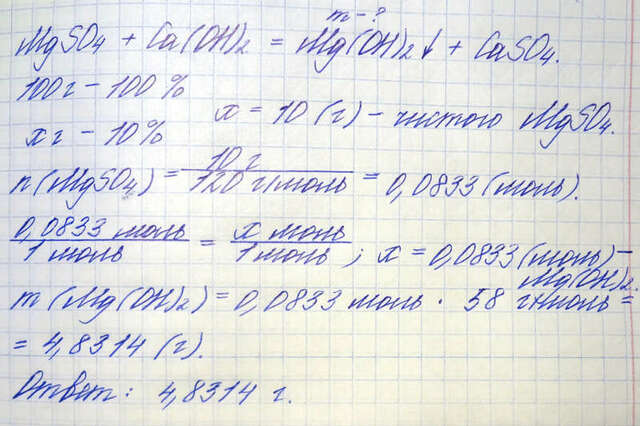 m - ?
MgSO4 + Ca(OH)2 = Mg(OH)2↓ + CaSO4.
100 г – 100 %
x г – 10 %
x = 10 (г) – чистого MgSO4.
n(MgSO4) = 10 г / 120 г/моль = 0,0833 (моль).
0,0833 моль / 1 моль = x моль / 1 моль ; x = 0,0833 (моль) –
Mg(OH)2.
m(Mg(OH)2) = 0,0833 моль · 58 г/моль =
= 4,8314 (г).
Ответ: 4,8314 г.